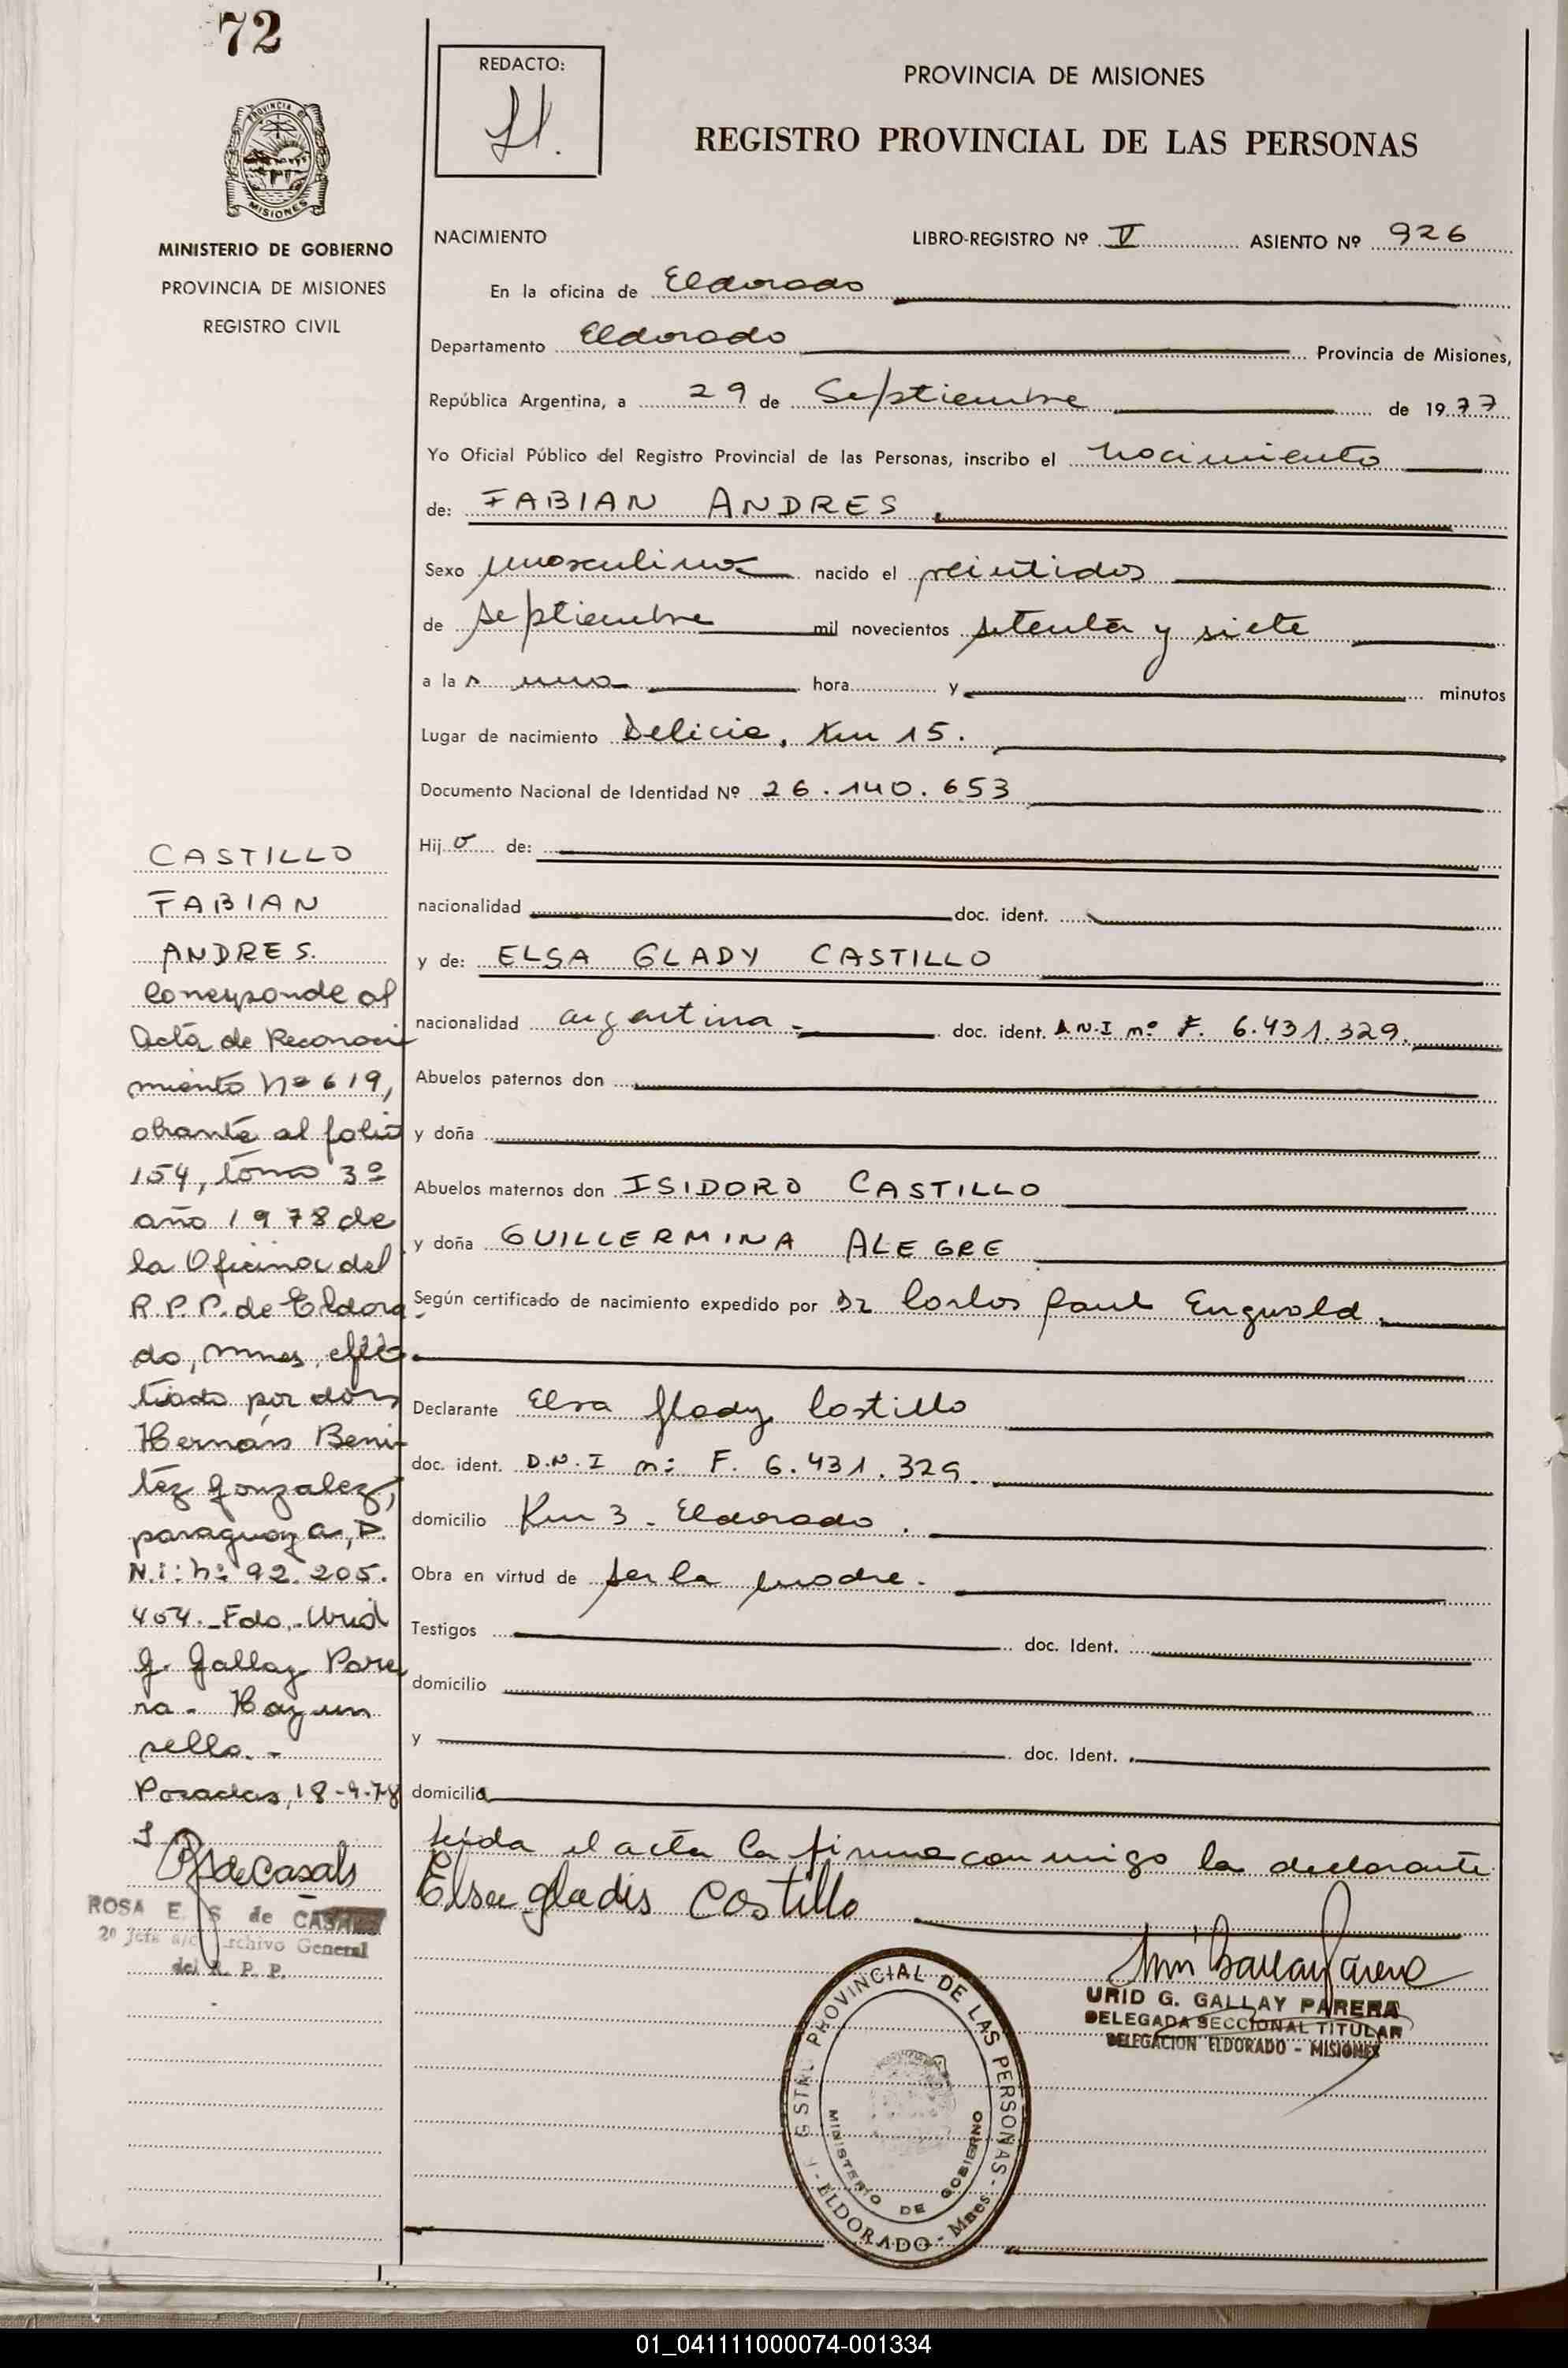 72
PROVINCIA DE
MISIONES
MINISTERIO DE GOBIERNO
PROVINCIA DE MISIONES
REGISTRO CIVIL
CASTILLO
FABIAN
ANDRES.
Corresponde al
Acta de Reconoci
miento Nº 619,
obrante al folio
154, tomo 3º
año 1978 de
la Oficina del
R.P.P. de Eldora
do, Mnes, efec
tuado por don
Hernán Bení-
tez Gonzalez,
paraguaya, D.
N.i: Nº 92.205.
404.- Fdo.- Urid
G. Gallay Pare
ra.- Hay un
sello.-
Posadas, 18-9-78
RSdeCasals
ROSA E. S de CASALS
2º Jefa a/c Archivo General
del R. P. P.
REDACTO:
PROVINCIA DE MISIONES
REGISTRO PROVINCIAL DE LAS PERSONAS
NACIMIENTO LIBRO-REGISTRO Nº V ASIENTO Nº 926
En la oficina de Eldorado
Departamento Eldorado Provincia de Misiones,
República Argentina, a 29 de Septiembre de 1977
Yo Oficial Público del Registro Provincial de las Personas, inscribo el nacimiento
de: FABIAN ANDRES.
Sexo masculino nacido el veintidos
de septiembre mil novecientos setenta y siete
a la s una hora y minutos
Lugar de nacimiento Delicia, Km 15.
Documento Nacional de Identidad Nº 26.140.653
Hij o de:
nacionalidad doc. ident.
y de: ELSA GLADY CASTILLO
nacionalidad argentina.- doc. ident. D.N.I nº F. 6.431.329.
Abuelos paternos don
y doña
Abuelos maternos don ISIDORO CASTILLO
y doña GUILLERMINA ALEGRE
Según certificado de nacimiento expedido por Dr Carlos Raul Enguold.
Declarante Elsa Glady Castillo
doc. ident. D.N.I nº F. 6.431.329.
domicilio Km 3 - Eldorado.
Obra en virtud de ser la madre.
Testigos doc. Ident.
domicilio
y doc. Ident.
domicilio
Leída el acta la firma conmigo la declarante
Elsa gladis Costillo
URID G. GALLAY PARERA
DELEGADA SECCIONAL TITULAR
DELEGACION ELDORADO - MISIONES
G STRO PROVINCIAL DE LAS PERSONAS - ELDORADO - Mnes.
MINISTERIO DE GOBIERNO
01_041111000074-001334